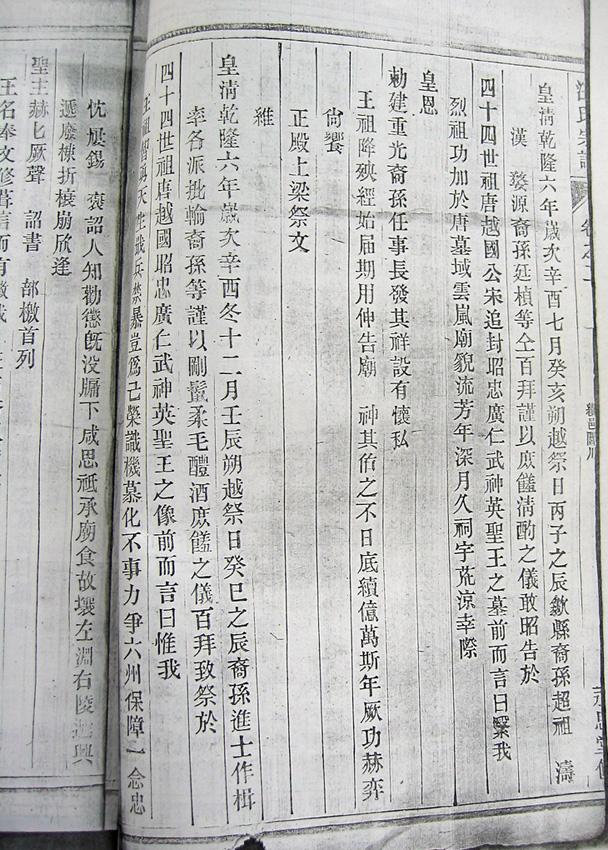 汪氏宗譜
卷之二
皇淸乾隆六年歲次辛酉七月癸亥朔越祭日丙子之辰歙縣裔孫超祖 濤
漢 婺源裔孫廷楨等仝百拜謹以庶饈淸酌之儀敢昭告於
四十四世祖唐越國公宋追封昭忠廣仁武神英聖王之墓前而言曰繄我
烈祖功加於唐墓域雲嵐廟貌流芳年深月久祠宇荒涼幸際
皇恩
勅建重光裔孫任事長發其祥設有懷私
王祖降殃經始屆期用伸告廟 神其佑之不日底績億萬斯年厥功赫奕
尙饗
正殿上梁祭文
維
皇淸乾隆六年歲次辛酉冬十二月壬辰朔越祭日癸巳之辰裔孫進士作楫
率各派批輸裔孫等謹以剛鬣柔毛醴酒庶饈之儀百拜致祭於
四十四世祖唐越國昭忠廣仁武神英聖王之像前而言曰惟我
王祖智與天生戢兵禁暴豈爲己榮識機慕化不事力爭六州保障一念忠
忱展錫 褒詔人知勸懲旣没牖下咸思祗承廟食故壤左淵右陵興
遞廢棟折榱崩欣逢
聖主赫匕厥聲 詔書 部檄首列
王名奉文修葺